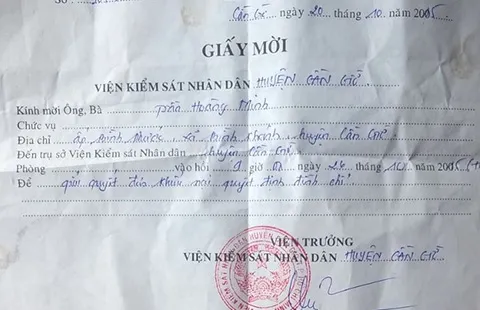 Số :
Cần Giờ, ngày 20 tháng 10 năm 2005
GIẤY MỜI
VIỆN KIỂM SÁT NHÂN DÂN HUYỆN CẦN GIỜ.
Kính mời Ông, Bà Trần Hoàng Minh
Chức vụ
Địa chỉ ấp Bình Phước, xã Bình Khánh, huyện Cần Giờ.
Đến trụ sở Viện Kiểm sát Nhân dân huyện Cần Giờ.
Phòng vào hồi 9 giờ 00 ngày 24 tháng 10 năm 2005
Để giải quyết đơn khiếu nại quyết định đình chỉ.
VIỆN TRƯỞNG
VIỆN KIỂM SÁT NHÂN DÂN HUYỆN CẦN GIỜ